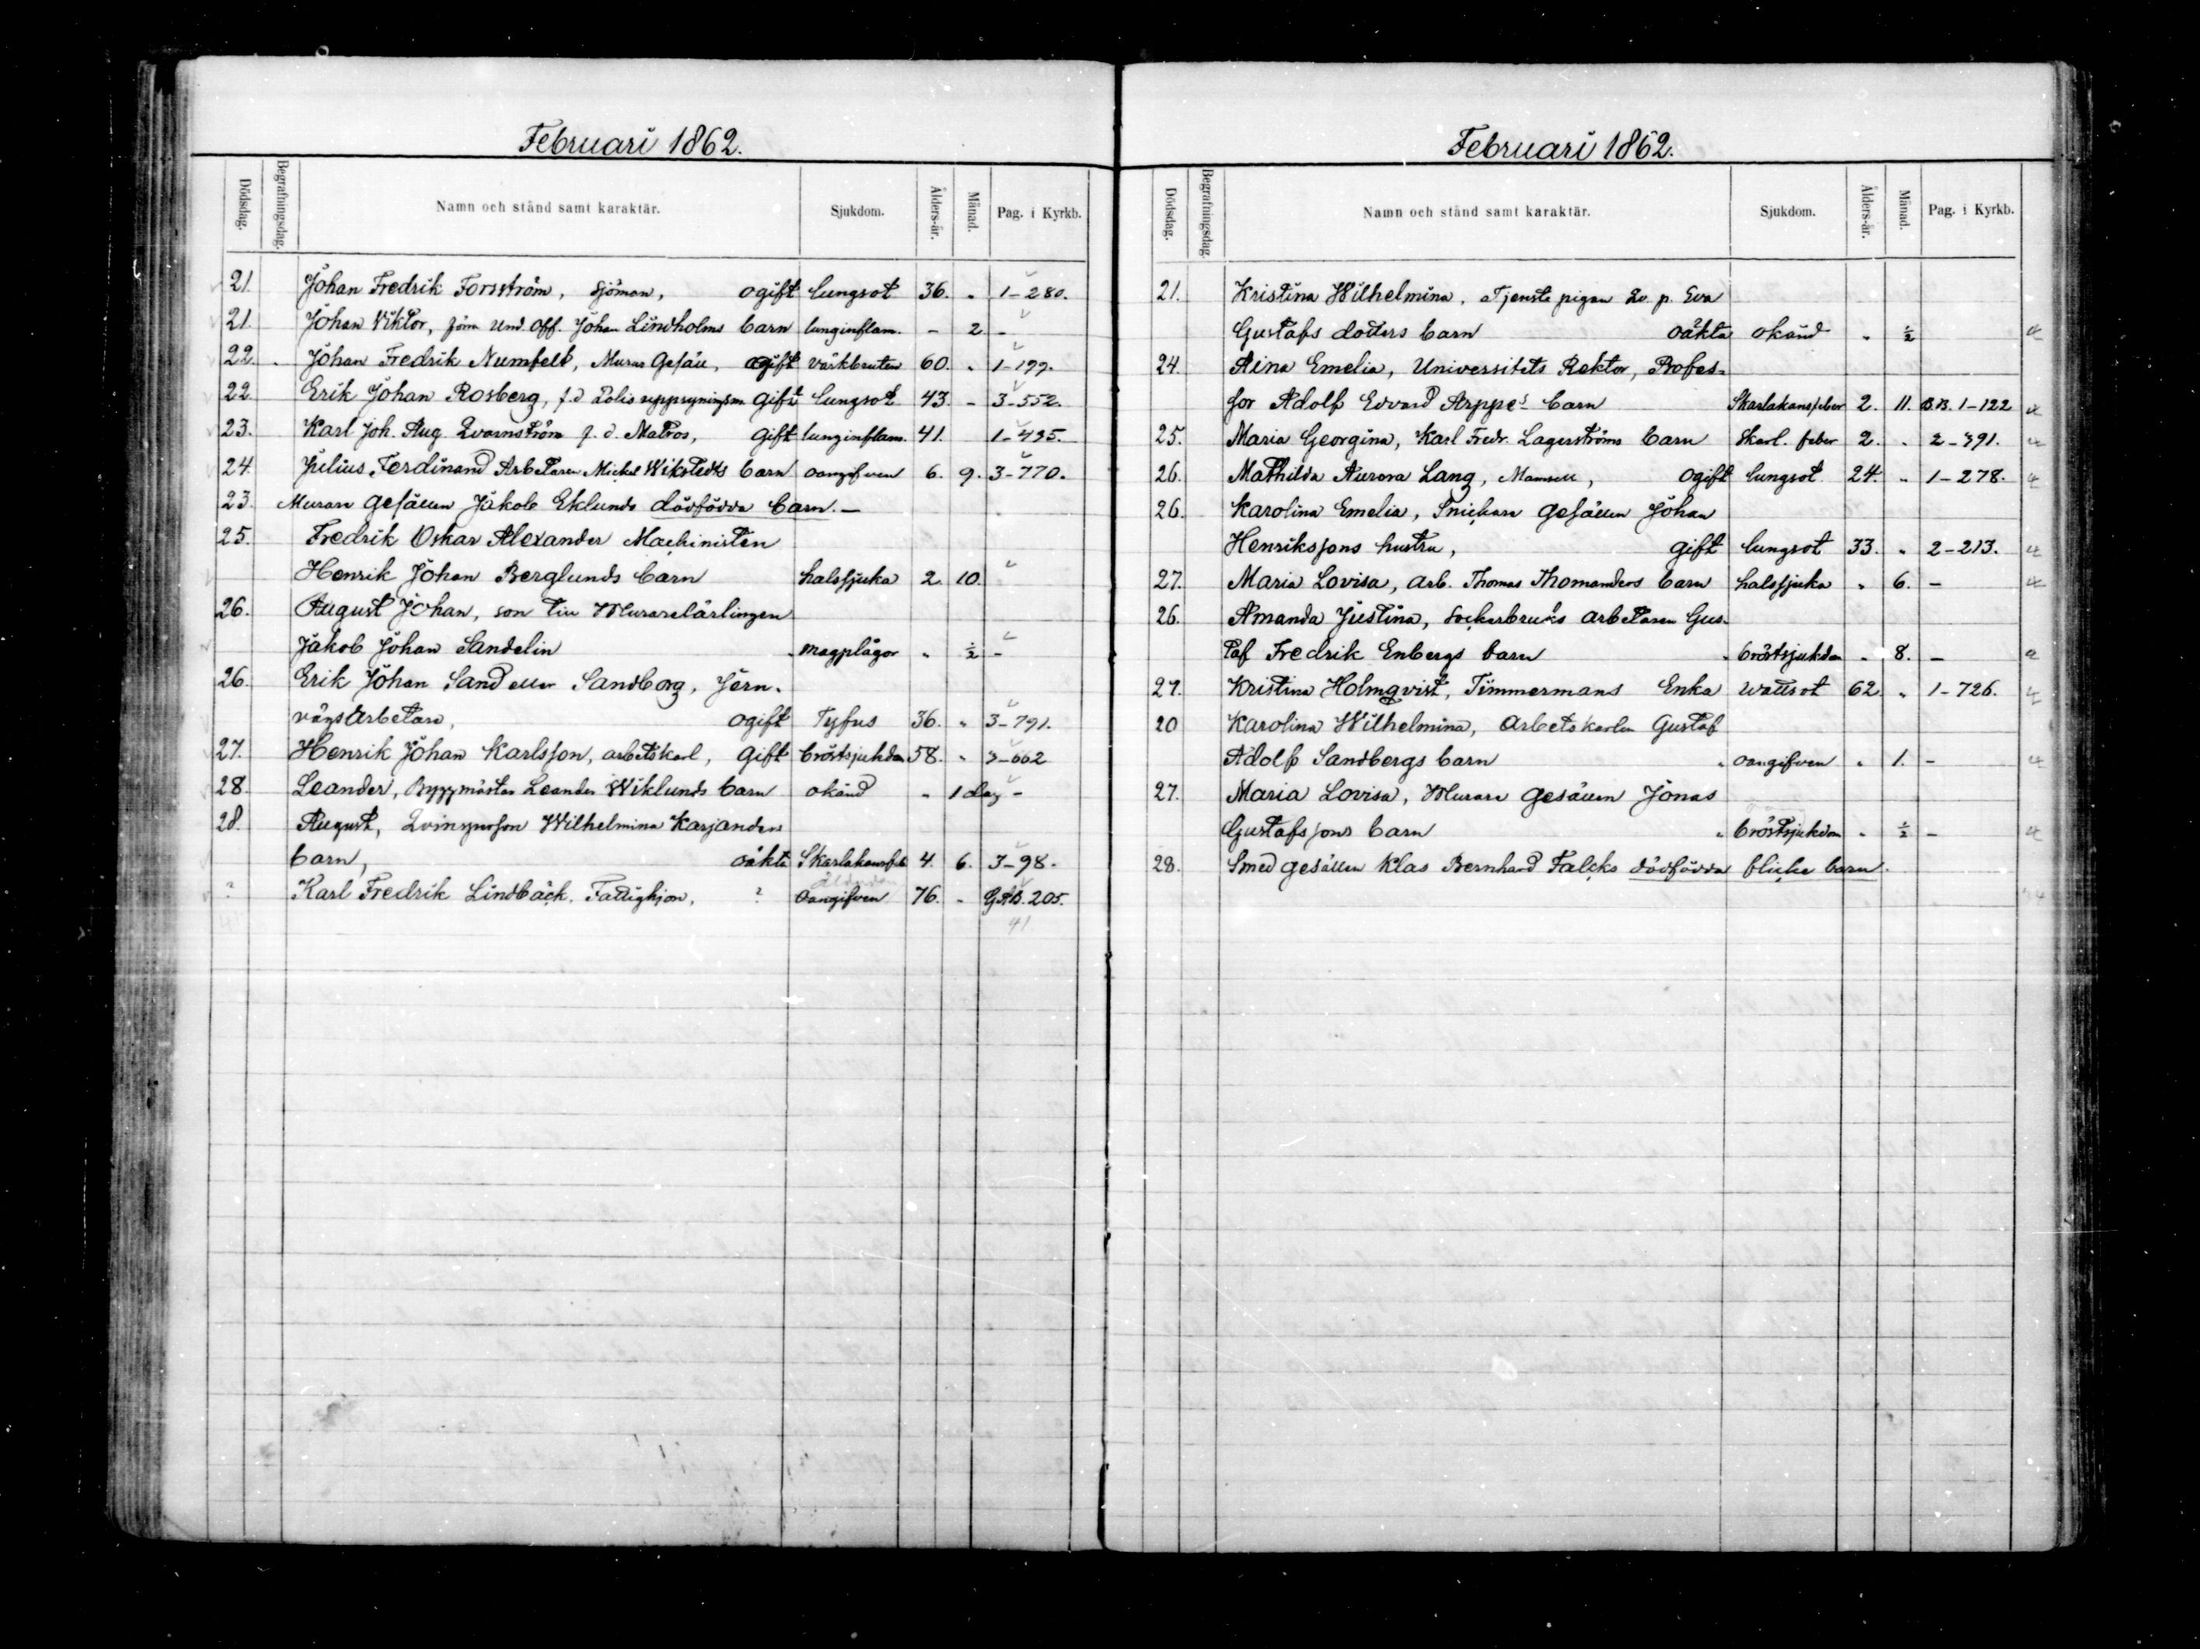 Februari 1862.
Dödsdag. Begrafningsdag. Namn och stånd samt karaktär. Sjukdom. Ålders-år. Månad. Pag. i Kyrkb.
21. Johan Fredrik Forsström, Sjöman, ogift lungsot 36. " 1-280.
21. Johan Viktor, förra Und. Off. Johan Lindholms barn lunginflam. - 2 -
22. Johan Fredrik Numfelt, Murar Gesäll, ogift värkbruten 60. " 1-199.
22. Erik Johan Rosberg, f.d Polisuppsyningsm. gift lungsot 43. - 3-552.
23. Karl Joh. Aug. Qvarnström f. d. Matros, gift lunginflam. 41. 1-495.
24. Julius Ferdinand Arbetaren Mickel Wikstedts barn oangifven 6. 9. 3-770.
23. Murare Gesällen Jakob Eklunds dödfödda barn. -
25. Fredrik Oskar Alexander Machinisten
Henrik Johan Berglunds barn halssjuka 2. 10.
26. August Johan, son till Murarelärlingen
Jakob Johan Sandelin " magplågor " ½ -
26. Erik Johan Sand eller Sandborg, Jern-
vägsarbetare, ogift Tyfus 36. " 3-791.
27. Henrik Johan Karlsson, arbetskarl, gift bröstsjukdom 58. " 3-662
28. Leander, Byggmästar Leander Wiklunds barn okänd " 1 dag -
28. August, Qvinspersson Wilhelmina Karjanders
barn, oäkta Skarlakansfeb 4. 6. 3-98.
? Karl Fredrik Lindbäck, Fattighjon, ? oangifven 76. " G.A.B. 205.
41
Februari 1862.
Dödsdag. Begrafningsdag Namn och stånd samt karaktär. Sjukdom. Ålders-år. Månad. Pag. i Kyrkb.
21. Kristina Wilhelmina, Tjenste pigan Qv. p. Eva
Gustafs dotters barn oäkta okänd " ½
24. Aina Emelia, Universitets Rektor, Profes-
sor Adolf Edvard Arppes barn Skarlakansfeber 2. 11. B.B. 1-122
25. Maria Georgina, Karl Fredr. Lagerströms barn Skarl. feber 2. " 2-391.
26. Mathilda Aurora Lang, Mamsell, ogift lungsot 24. " 1-278.
26. Karolina Emelia, Snickare gesällen Johan
Henrikssons hustru, gift lungsot 33. " 2-213.
27. Maria Lovisa, arb. Thomas Thomanders barn halssjuka " 6. -
26. Amanda Justina, Sockerbruks arbetaren Gus-
taf Fredrik Enbergs barn " bröstsjukdom " 8. -
27. Kristina Holmqvist, Timmermans Enka wattsot 62 " 1-726.
20 Karolina Wilhelmina, Arbetskarlen Gustaf
Adolf Sandbergs barn " oangifven " 1. -
27. Maria Lovisa, Murare gesällen Jonas
Gustafssons barn " bröstsjukdom " ½ -
28. Smed gesällen Klas Bernhard Falcks dödfödda flicke barn.